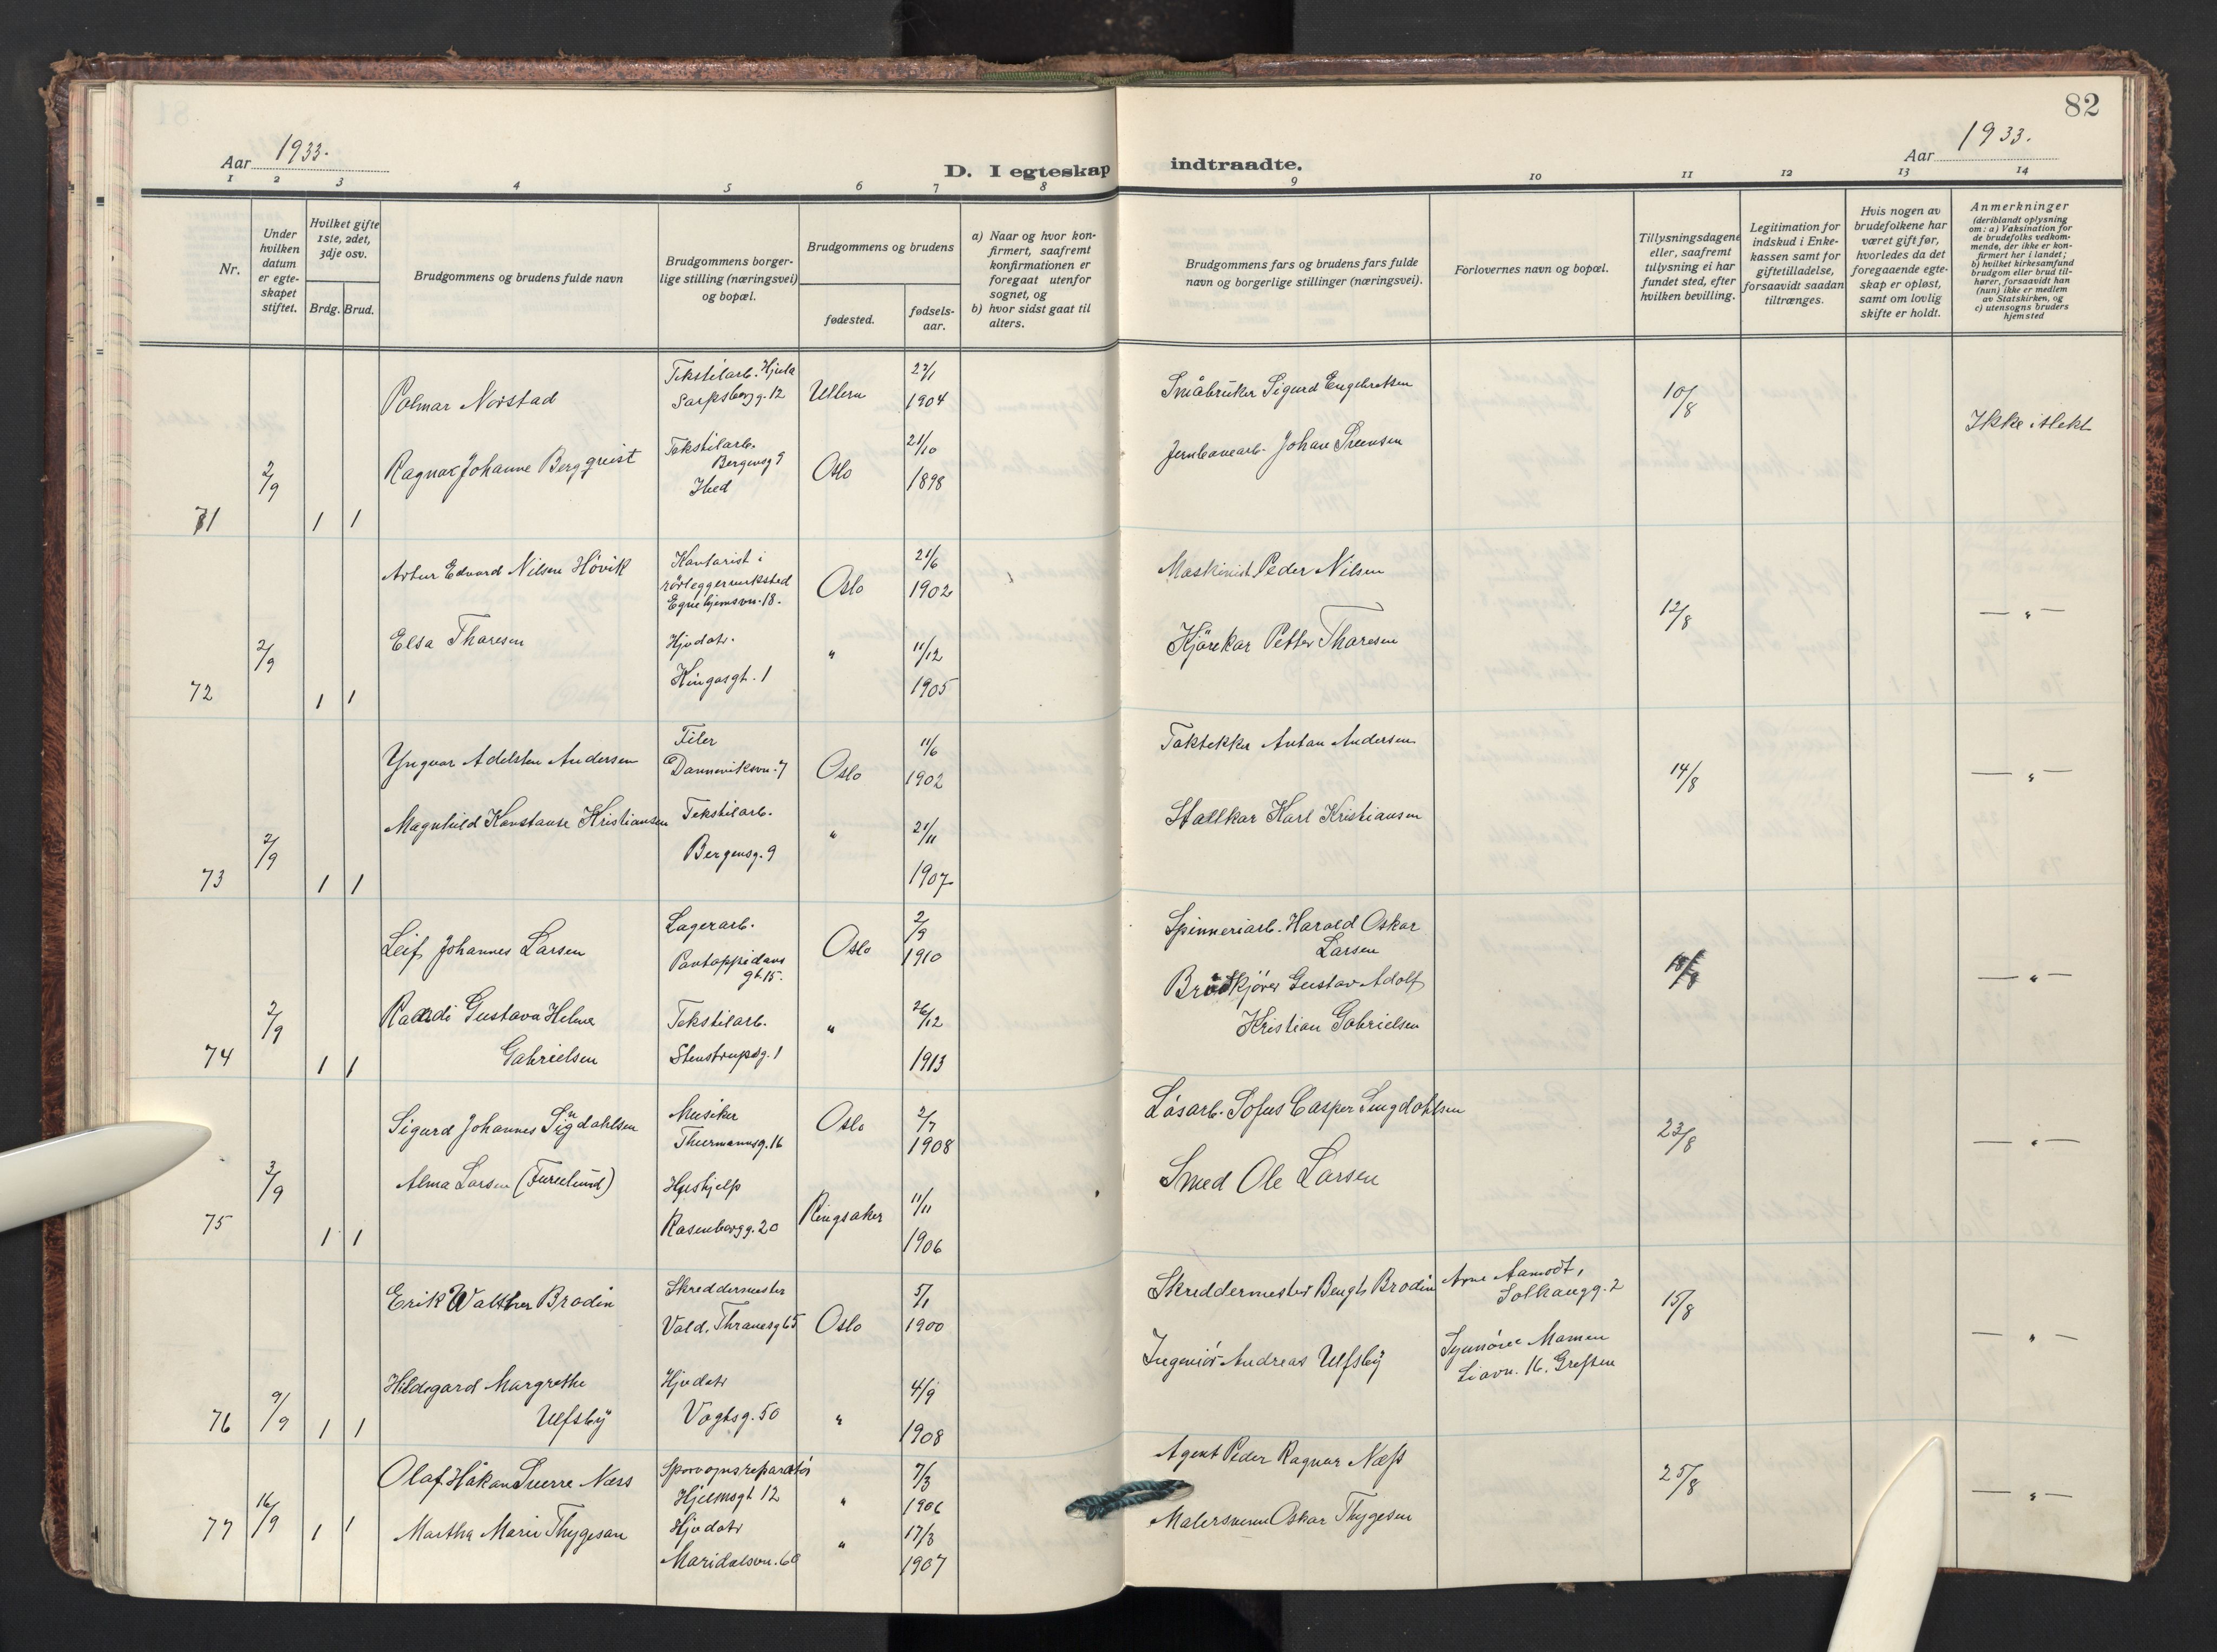 82
Aar 1933.
Aar 1933.
D. I egteskap indtraadte.
1 2 3 4 5 6 7 8 9 10 11 12 13 14
Nr.
Under
hvilken
datum
er egte-
skapet
stiftet.
Hvilket gifte
1ste, 2det,
3dje osv.
Brdg.
Brud.
Brudgommens og brudens fulde navn
Brudgommens borger-
lige stilling (næringsvei)
og bopæl.
Brudgommens og brudens
fødested.
fødsels-
aar.
a) Naar og hvor kon-
firmert, saafremt
konfirmationen er
foregaat utenfor
sognet, og
b) hvor sidst gaat til
alters.
Brudgommens fars og brudens fars fulde
navn og borgerlige stillinger (næringsvei).
Forlovernes navn og bopæl.
Tillysningsdagene
eller, saafremt
tillysning ei har
fundet sted, efter
hvilken bevilling.
Legitimation for
indskud i Enke-
kassen samt for
giftetilladelse,
forsaavidt saadan
tiltrænges.
Hvis nogen av
brudefolkene har
været gift før,
hvorledes da det
foregaaende egte-
skap er opløst,
samt om lovlig
skifte er holdt.
Anmerkninger
(deriblandt oplysning
om: a) Vaksination for
de brudefolks vedkom-
mende, der ikke er kon-
firmert her i landet;
b) hvilket kirkesamfund
brudgom eller brud til-
hører, forsaavidt han
(hun) ikke er medlem
av Statskirken, og
c) utensogns bruders
hjemsted
71
2/9
1 1
Polmar Norstad
Tekstilarb. Hjula
Sarpsborgg. 12
Ullern
1904
Småbruker Sigurd Engebretsen
10/8
Ikke i slekt
Ragna Johanne Bergquist
Tekstilarb.
Bergensg 9
Oslo
21/10
1898
Jernbanearb. Johan Svensen
72
2/9
1 1
Artur Edvard Nilsen Hövik
Kontorist i
rörleggerverksted
Egnehjemsvn. 18.
Oslo
21/6
1902
Maskinist Peder Nilsen
12/8
— " —
Elsa Thoresen
Hjvdatr.
Kingosgt. 1
"
11/12
1905
Kjörekar Petter Thoresen
73
2/9
1 1
Yngvar Adelsten Andersen
Filer
Danneviksvn. 7
Oslo
11/6
1902
Taktekker Anton Andersen
14/8
— " —
Magnhild Konstanse Kristiansen
Tekstilarb.
Bergensg. 9
"
21/11
1907
Stallkar Karl Kristiansen
74
2/9
1 1
Leif Johannes Larsen
Lagerarb.
Pontoppidans
gt. 15.
Oslo
2/9
1910
Spinneriarb. Harald Oskar
Larsen
18/8
— " —
Gustava Helene
Gabrielsen
Tekstilarb.
Stenstrupsg. 1
"
26/12
1913
Brödkjörer Gustav Adolf
Kristian Gabrielsen
75
3/9
1 1
Sigurd Johannes Singdahlsen
Musiker
Thurmannsg. 16
Oslo
2/7
1908
Lösarb. Sofus Casper Singdahlsen
23/8
— " —
Alma Larsen (Furulund)
Hushjelp
Rosenborgg. 20
Ringsaker
11/11
1906
Smed Ole Larsen
76
9/9
1 1
Erik Walther Brodin
Skreddermester
Vald. Thranesg 65
Oslo
5/1
1900
Skreddermester Bengt Brodin
Arne Aamodt,
Solhaugg. 2
15/8
— " —
Hildegard Margrethe
Ulfsby
Hjvdatr
Vogtsg. 50
"
4/9
1908
Ingeniör Andreas Ulfsby
Synnöve Mamen
Liavn. 16. Grefsen
77
16/9
1 1
Olaf Håkon Sverre Næss
Sporvognsreparatör
Hjelmsgt 12
"
7/3
1906
Agent Peder Ragnar Næss
25/8
— " —
Martha Marie Thygesen
Hjvdatr
Maridalsvn. 60
"
17/3
1907
Malersvenn Oskar Thygesen